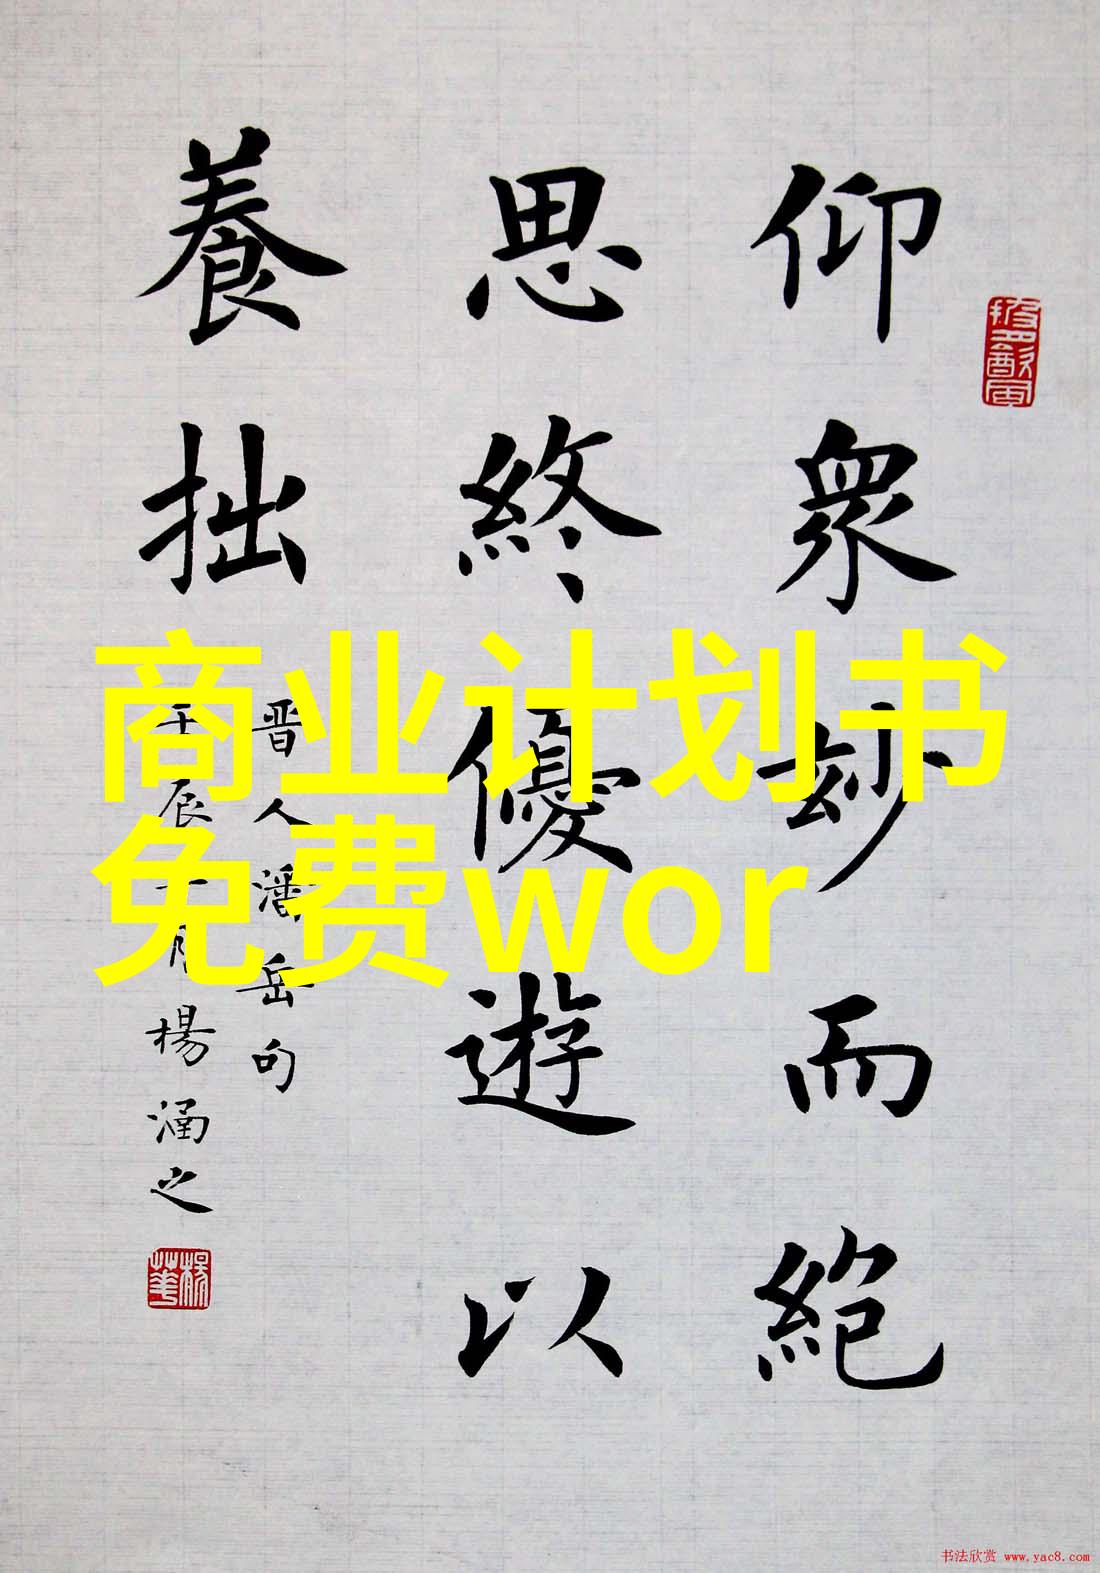 仰衆玅而絶
思終優遊以
養拙
晋人潘岳句
壬辰月楊涵之
楊華
商业计划书
免费wor
书法欣赏 www.yac8.com